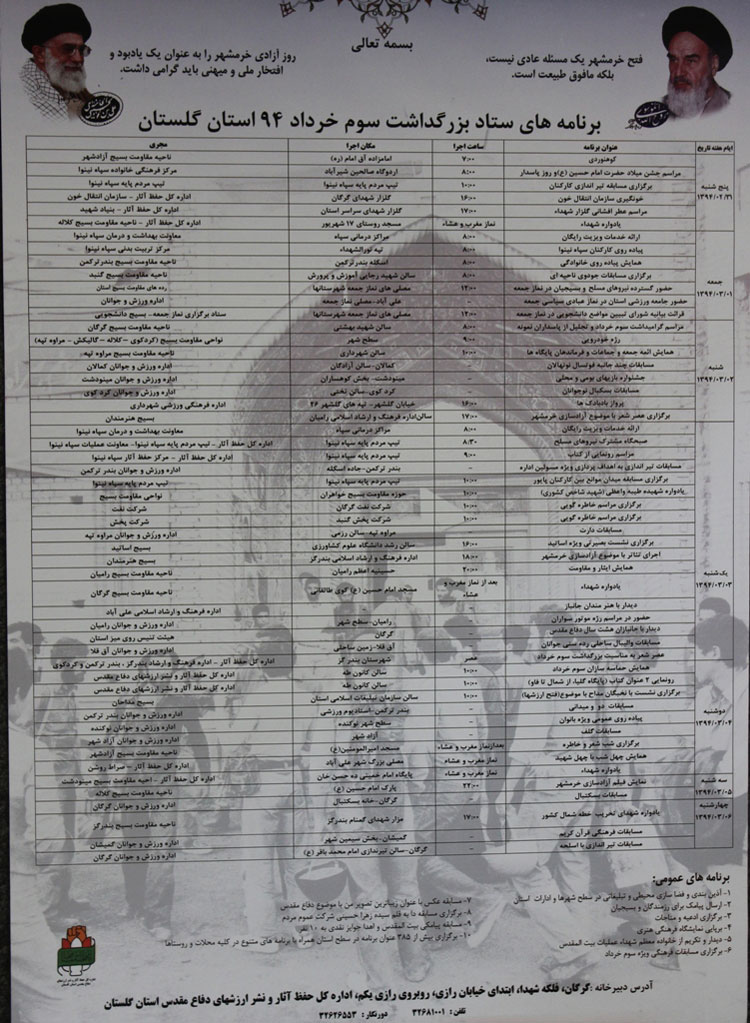 بسمه تعالی
فتح خرمشهر یک مسئله عادی نیست،
بلکه مافوق طبیعت است.
روز آزادی خرمشهر را به عنوان یک یادبود و
افتخار ملی و میهنی باید گرامی داشت.
برنامه های ستاد بزرگداشت سوم خرداد ۹۴ استان گلستان
ایام هفته تاریخ عنوان برنامه ساعت اجرا مکان اجرا مجری
پنج شنبه ۱۳۹۴/۰۲/۳۱
کوهنوردی ۷:۰۰ امامزاده آق امام (ره) ناحیه مقاومت بسیج آزادشهر
مراسم جشن میلاد حضرت امام حسین (ع)و روز پاسدار ۸:۰۰ اردوگاه صالحین شیرآباد مرکز فرهنگی خانواده سپاه نینوا
برگزاری مسابقه تیر اندازی کارکنان ۱۰:۰۰ تیپ مردم پایه سپاه نینوا تیپ مردم پایه سپاه نینوا
خونگیری سازمان انتقال خون ۱۶:۰۰ گلزار شهدای گرگان اداره کل حفظ آثار - سازمان انتقال خون
مراسم عطر افشانی گلزار شهداء ۱۷:۰۰ گلزار شهدای سراسر استان اداره کل حفظ آثار - بنیاد شهید
یادواره شهداء نماز مغرب و عشاء مسجد روستای ۱۷ شهریور اداره کل حفظ آثار - ناحیه مقاومت بسیج کلاله
ارائه خدمات ویزیت رایگان ۸:۰۰ مراکز درمانی سپاه معاونت بهداشت و درمان سپاه نینوا
جمعه ۱۳۹۴/۰۳/۰۱
پیاده روی کارکنان سپاه نینوا ۸:۰۰ تپه نورالشهداء مرکز تربیت بدنی سپاه نینوا
همایش پیاده روی خانوادگی ۸:۰۰ اسکله بندرترکمن ناحیه مقاومت بسیج بندرترکمن
برگزاری مسابقات جودوی ناحیه ای ۸:۰۰ سالن شهید رجایی آموزش و پرورش ناحیه مقاومت بسیج گنبد
حضور گسترده نیروهای مسلح و بسیجیان در نماز جمعه ۱۲:۰۰ مصلی های نماز جمعه شهرستانها رده های مقاومت بسیج استان
حضور جامعه ورزشی استان در نماز عبادی سیاسی جمعه - علی آباد- مصلی نماز جمعه اداره ورزش و جوانان
قرائت بیانیه شورای تبیین مواضع دانشجویی در نماز جمعه ۱۲:۰۰ مصلی های نماز جمعه شهرستانها ستاد برگزاری نماز جمعه- بسیج دانشجویی
شنبه ۱۳۹۴/۰۳/۰۲
مراسم گرامیداشت سوم خرداد و تجلیل از پاسداران نمونه ۸:۰۰ سالن شهید بهشتی ناحیه مقاومت بسیج گرگان
رژه خودرویی ۹:۰۰ سطح شهر نواحی مقاومت بسیج (کردکوی -کلاله -گالیکش - مراوه تپه)
همایش ائمه جمعه و جماعات و فرماندهان پایگاه ها ۱۰:۰۰ سالن شهرداری ناحیه مقاومت بسیج مراوه تپه
مسابقات چند جانبه فوتسال نونهالان - کمالان- سالن آزادگان اداره ورزش و جوانان کمالان
جشنواره بازیهای بومی و محلی - مینودشت- بخش کوهساران اداره ورزش و جوانان مینودشت
مسابقات بسکتبال نوجوانان - کرد کوی -سالن تختی اداره ورزش و جوانان کرد کوی
پرواز بادبادک ها ۱۶:۰۰ خیابان گلشهر- تپه های گلشهر ۲۶ اداره فرهنگی ورزشی شهرداری
برگزاری عصر شعر با موضوع آزادسازی خرمشهر ۱۷:۰۰ سالن اداره فرهنگ و ارشاد اسلامی رامیان بسیج هنرمندان
یک شنبه ۱۳۹۴/۰۳/۰۳
ارائه خدمات ویزیت رایگان ۸:۰۰ مراکز درمانی سپاه معاونت بهداشت و درمان سپاه نینوا
صبحگاه مشترک نیروهای مسلح ۸:۳۰ تیپ مردم پایه سپاه نینوا اداره کل حفظ آثار - تیپ مردم پایه سپاه نینوا- معاونت عملیات سپاه نینوا
مراسم رونمایی از کتاب ۹:۰۰ تیپ مردم پایه سپاه نینوا اداره کل حفظ آثار - مرکز حفظ آثار سپاه نینوا
مسابقات تیر اندازی به اهداف پروازی ویژه مسولین اداره - بندر ترکمن-جاده اسکله اداره ورزش و جوانان بندر ترکمن
برگزاری مسابقه میدان موانع بین کارکنان پاپور ۱۰:۰۰ تیپ مردم پایه سپاه نینوا تیپ مردم پایه سپاه نینوا
یادواره شهیده طیبه واعظی (شهید شاخص کشوری) ۱۰:۰۰ حوزه مقاومت بسیج خواهران نواحی مقاومت بسیج
برگزاری مراسم خاطره گویی ۱۰:۰۰ شرکت نفت گرگان شرکت نفت
برگزاری مراسم خاطره گویی ۱۰:۰۰ شرکت پخش گنبد شرکت پخش
مسابقات دارت - مراوه تپه-سالن رزمی اداره ورزش و جوانان مراوه تپه
برگزاری نشست بصیرتی ویژه اساتید ۱۶:۰۰ سالن رشد دانشگاه علوم کشاورزی بسیج اساتید
اجرای تئاتر با موضوع آزادسازی خرمشهر ۱۸:۰۰ اداره فرهنگ و ارشاد اسلامی بندرگز بسیج هنرمندان
همایش ایثار و مقاومت ۲۰:۰۰ حسینیه اعظم رامیان ناحیه مقاومت بسیج رامیان
یادواره شهداء بعد از نماز مغرب و عشاء مسجد امام حسین (ع) کوی طالقانی ناحیه مقاومت بسیج گرگان
دیدار با هنر مندان جانباز - اداره فرهنگ و ارشاد اسلامی علی آباد
حضور در مراسم رژه موتور سواران - رامیان -سطح شهر اداره ورزش و جوانان رامیان
دیدار با جانبازان هشت سال دفاع مقدس - گرگان هیئت تنیس روی میز استان
مسابقات والیبال ساحلی رده سنی جوانان - آق قلا- زمین ساحلی اداره ورزش و جوانان آق قلا
عصر شعر به مناسبت بزرگداشت سوم خرداد عصر شهرستان بندر گز اداره کل حفظ آثار - اداره فرهنگ و ارشاد بندرگز ، بندر ترکمن و کردکوی
دوشنبه ۱۳۹۴/۰۳/۰۴
همایش حماسه سازان سوم خرداد ۱۰:۰۰ سالن کانون طه اداره کل حفظ آثار و نشر ارزشهای دفاع مقدس
رونمایی ۲ عنوان کتاب (پایگاه گلیا، از شمال تا فاو) ۱۰:۰۰ سالن کانون طه اداره کل حفظ آثار و نشر ارزشهای دفاع مقدس
برگزاری نشست با نخبگان مداح با موضوع(فتح ارزشها) ۱۰:۰۰ سالن سازمان تبلیغات اسلامی استان بسیج مداحان
مسابقات دو و میدانی - بندر ترکمن-استادیوم ورزشی اداره ورزش و جوانان بندر ترکمن
پیاده روی عمومی ویژه بانوان - سطح شهر نوکنده اداره ورزش و جوانان نوکنده
مسابقات گلف - آزاد شهر اداره ورزش و جوانان آزاد شهر
برگزاری شب شعر و خاطره بعدازنماز مغرب و عشاء مسجد امیرالمومنین(ع) ناحیه مقاومت بسیج آزادشهر
همایش چهل شب با چهل شهید نماز مغرب و عشاء مصلی بزرگ شهر علی آباد اداره کل حفظ آثار - صراط روشن
سه شنبه ۱۳۹۴/۰۳/۰۵
یادواره شهداء نماز مغرب و عشاء پایگاه امام خمینی ده حسن خان اداره کل حفظ آثار - ناحیه مقاومت بسیج مینودشت
نمایش فیلم آزادسازی خرمشهر ۲۲:۰۰ پارک امام حسین (ع) ناحیه مقاومت بسیج کلاله
مسابقات بسکتبال - گرگان-خانه بسکتبال اداره ورزش و جوانان گرگان
چهارشنبه ۱۳۹۴/۰۳/۰۶
یادواره شهدای تخریب خطه شمال کشور ۱۷:۰۰ مزار شهدای گمنام بندرگز ناحیه مقاومت بسیج بندرگز
مسابقات فرهنگی قرآن کریم - گمیشان-بخش سیمین شهر اداره ورزش و جوانان گمیشان
مسابقات تیر اندازی با اسلحه - گرگان-سالن تیراندازی امام محمد باقر (ع) اداره ورزش و جوانان گرگان
برنامه های عمومی:
۱- آذین بندی و فضا سازی محیطی و تبلیغاتی در سطح شهرها و ادارات استان
۲- ارسال پیامک برای رزمندگان و بسیجیان
۳- برگزاری ادعیه و مناجات
۴- برپایی نمایشگاه فرهنگی هنری
۵- دیدار و تکریم از خانواده معظم شهداء عملیات بیت المقدس
۶- برگزاری مسابقات فرهنگی ویژه سوم خرداد
۷- مسابقه عکس با عنوان زیباترین تصویر من با موضوع دفاع مقدس
۸- برگزاری مسابقه دا به قلم سیده زهرا حسینی شرکت عموم مردم
۹- مسابقه پیامکی بیت المقدس و اهدا جوایز نقدی به ۱۰ نفر
۱۰- برگزاری بیش از ۳۸۵ عنوان برنامه در سطح استان همراه با برنامه های متنوع در کلیه محلات و روستاها
آدرس دبیرخانه :گرگان، فلکه شهدا، ابتدای خیابان رازی، روبروی رازی یکم، اداره کل حفظ آثار و نشر ارزشهای دفاع مقدس استان گلستان
تلفن : ۳۲۶۸۱۰۰۱ دورنگار: ۳۲۶۲۶۵۵۳